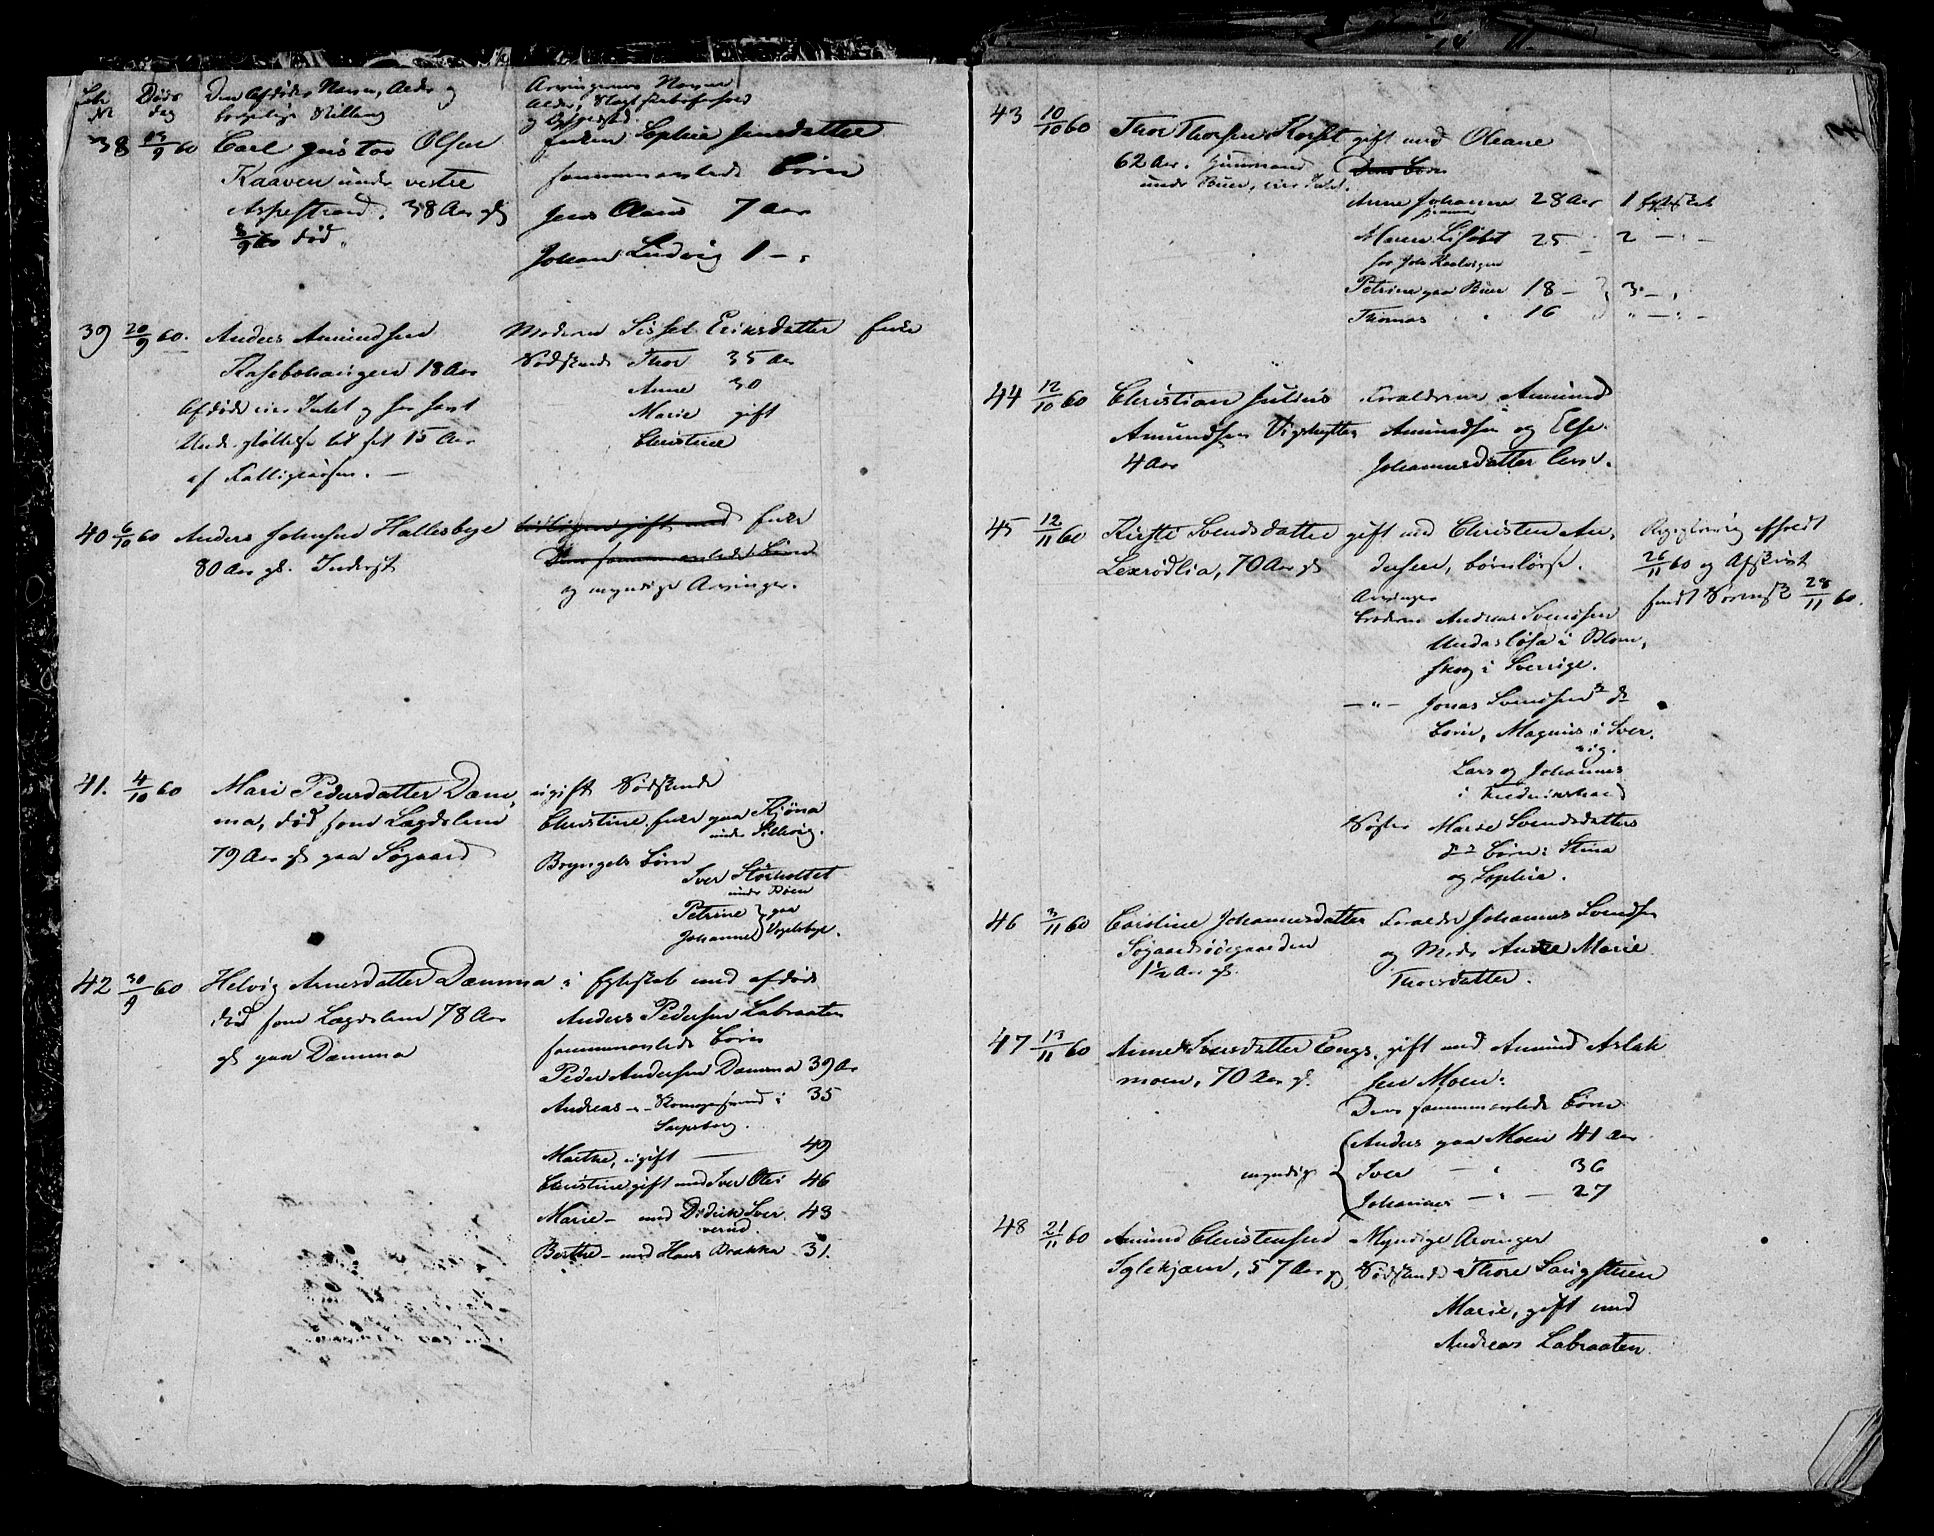 Løb Døds Den Afdødes Navn, Alder og
N. dag borgelige Stilling
Arvingernes Navne
Alder, Slægtskabsforhold
og Opholdssted
38 13/9 60 Carl Gustav Olsen
Kaaven under vestre
Aspestrand. 38 Aar gl
3/9 60 død.
Enken Sophie Jensdatter
sammenavlede Børn
Jens Olaus 7 Aar
Johan Ludvig 1 - .
39 20/9 60. Anders Amundsen
18 Aar
Afdøde eier Intet og har havt
Understøttelse til sit 15 Aar
af Fattigkassen. -
Moderen Sissel Eriksdatter Enke
Sødskende Thor 35 Aar
Anne 30
Marie gift
Christine
40 6/10 60 Anders Johnsen Hallesbye
80 Aar gl. Inderst
gift med Enke
Dens sammenavlede Børn
og myndige Arvinger.
41. 4/10 60 Mari Pedersdatter Dam,
ma, død som Lægdslem
79 Aar gl paa Søgaard
ugift Sødskende
Christine, Enke paa Kjøna
under Sillevig.
Bryngels Børn
Iver Storholtet
under
Petrine } paa
Johanne} Vogelsbye.
42 30/9 60 Helvig Arnesdatter Damma
død som Lægdslem 78 Aar
gl paa Damma
i Egteskab med afdøde
Anders Pedersen Labraaten
sammenavlede Børn
Peder Andersen Damma 39 Aar
Andreas - - i 35
Sarpsborg.
Marthe, ugift - 49
Christine gift med Iver Olsen 46
Marie - med Didrik Iver 43
Berthe - med Hans Brakka 31.
43 10/10 60 Thor Thorsen Korset
62 Aar. Huusmand
under Buer, eier Intet.
gift med Oleane
Dens Børn
Anne Johanne 28 Aar 1 Egteskab
Maren Lisebet 25 - 2 - . -
Petrine paa Buer 18 - } 3 - .
Thomas " 16 } " - . -
44 12/10 60 Christian Julius
Amundsen Vigshytten
4 Aar
Forældrene Amund
Amundsen og Else
Johannesdatter
45 12/11 60 Kirsti Svendsdatter
Lexrødlia, 70 Aar gl
gift med Christen An,
dersen, børnløse.
Arvinger
Broderen Andreas Svendsen
i Blom,
skog i Sverrige.
- " - Jonas Svendsens
Børn, Magnus i Sver,
rig.
Lars og Johannes
i Fredrikshald
Søster Marie Svendsdatters
Børn: Stina
og Sophie.
Registrering afholdt
26/11 60 og Afskrift
sendt 28/11 60.
46 3/11 60 Caroline Johannesdatter
Søgaardsødegaarden
1 1/2 Aar gl.
Forældre Johannes Svendsen
og Moder Anne Marie
Thorsdatter.
47 13/11 60 Anne Iversdatter Engs,
moen, 70 Aar gl.
gift med Amund Aslak
sen Moen:
Deres sammenavlede Børn
myndige { Anders paa Moen 41 Aar
Iver - " 36
Johannes - " - 27
48 21/11 60 Amund Christensen
Iglekjærn, 57 Aar gl
Myndige Arvinger
Sødskende Thore Langstuen
Marie, gift med
Andreas Labraaten.